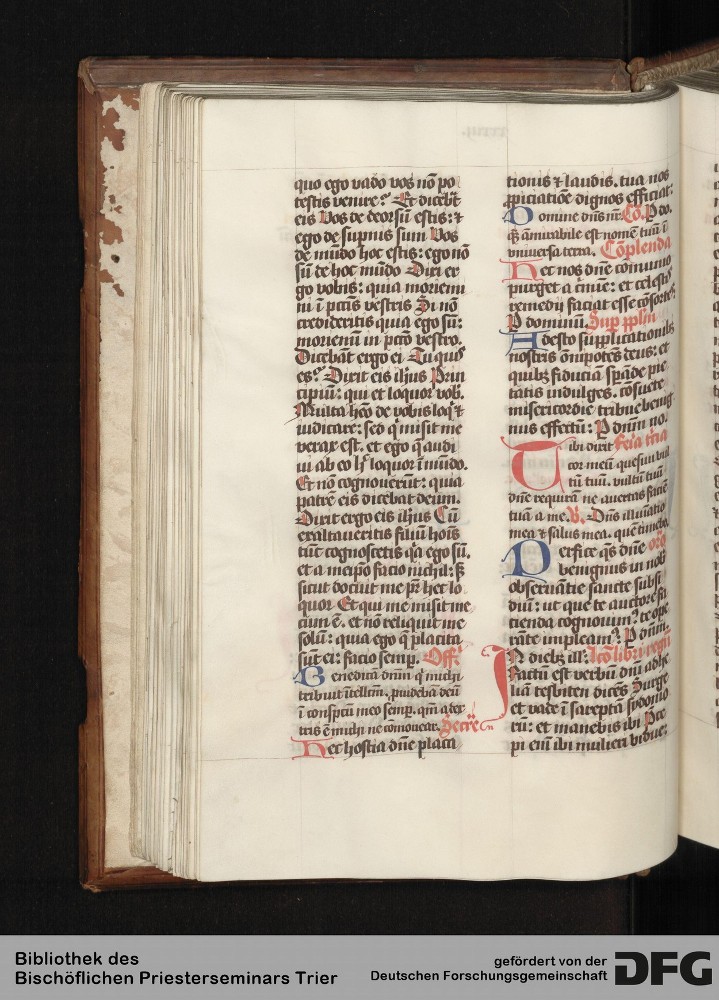 quo ego vado vos nō po
testis venire? Et dicebāt
eis Vos de deorsū estis: ⁊
ego de supnis sum Vos
de mūdo hoc estis: ego nō
sū de hoc mūdo Dixi er
go vobis: quia moriemi
ni ī pctīs vestris Si nō
credideritis quia ego sū:
moriemī in pctō vestro.
Dicebāt ergo ei Tu quis
es? Dixit eis ihūs Prin
cipiū: qui et loquor vob̄.
Multa heō de vobis loqⁱ ⁊
iudicare: sed qⁱ misit me
verax est. et ego q̄ audi
ui ab eo hᶜ loquor ī mūdo.
Et nō cognoverūt: quia
patrē eis dicebat deum.
Dixit ergo eis ihūs Cū
exaltaveritis filiū hoīs
tūc cognoscetis qᵃ ego sū.
et a meipō facio nichil: sꝫ
sicut docuit me pr̄ hec lo
quor Et qui me misit me
cum ē. et nō reliquit me
solū: quia ego q̄ placita
sūt ei: facio semp̄. Off.
Benedicā dn̄m qⁱ michi
tribuit ītellm̄. pvidebā deū
ī conspctū meo semp̄. qm̄ a dex
tris ē michi ne cōmovear. Secre
Hec hostia dn̄e placa
tionis ⁊ laudis. tua nos
ꝓpiciatiōe dignos efficiat:
Domine dn̄s nr̄ Cō. P do.
q̄ āmirabile est nomē tuū ī
vniversa terra. Cōplenda
Hec nos dn̄e cōmunio
purget a cⁱmīe: et celestꝭ
remedij faciat esse cōsortes
P dominū. Sup pplm̄
Adesto supplicationibꝫ
nostris ōnipotēs deus: et
quibꝫ fiduciā spāde pie
tatis indulges. cōsuete
misericordie tribue benig
nus effectū: P dnm̄ no.
Tibi dixit Feīa tⁱcia
cor meū quesiui vul
tū tuū. vultū tuū
dn̄e requirā ne avertas faciē
tuā a me. V. Dn̄s illuīatio
mea ⁊ salus mea. quē timebo.
Perfice qs̄ dn̄e orō
benignus in nob̄
observātie sancte subsi
diū: ut que te auctore fa
cienda cognouimꝰ. te ope
rāte impleamꝰ. P dnm̄.
In diebꝫ ill̄. Lcō libri regū
Factū est verbū dn̄i ad he
liā tesbiten dicēs Surge
et vade ī sareptā sydonio
rū: et manebis ibi Pre
pi eni ibi mulieri vidue:
Bibliothek des
Bischöflichen Priesterseminars Trier
gefördert von der
Deutschen Forschungsgemeinschaft
DFG